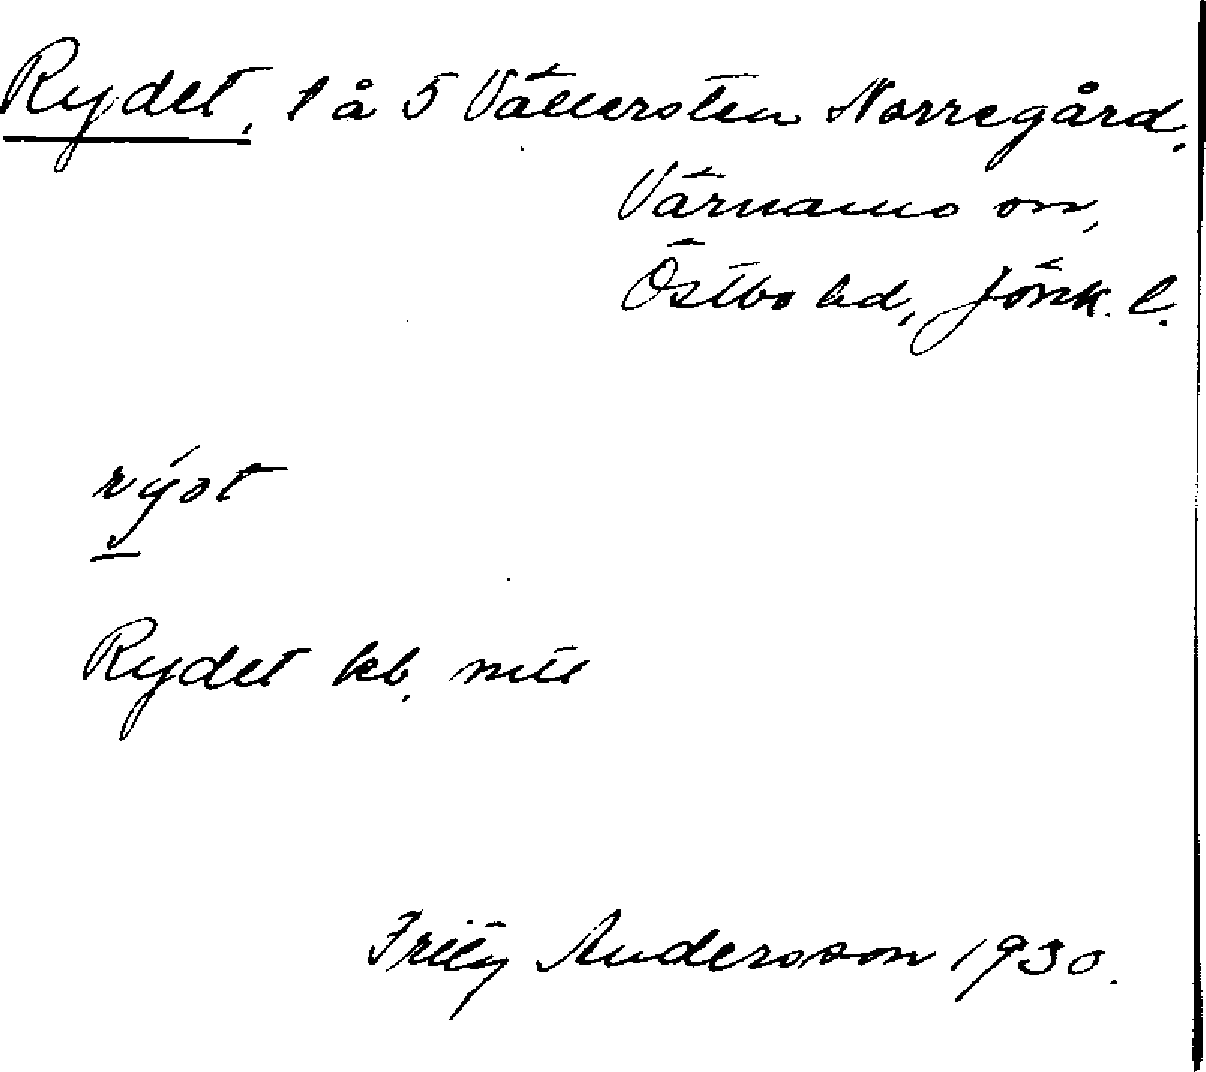 Rydet, l å 5 Vällersten Norregård,
Värnamo sn,
Östbo hd, Jönk. l.
rýət
Rydet kb.
Andersson 1930.